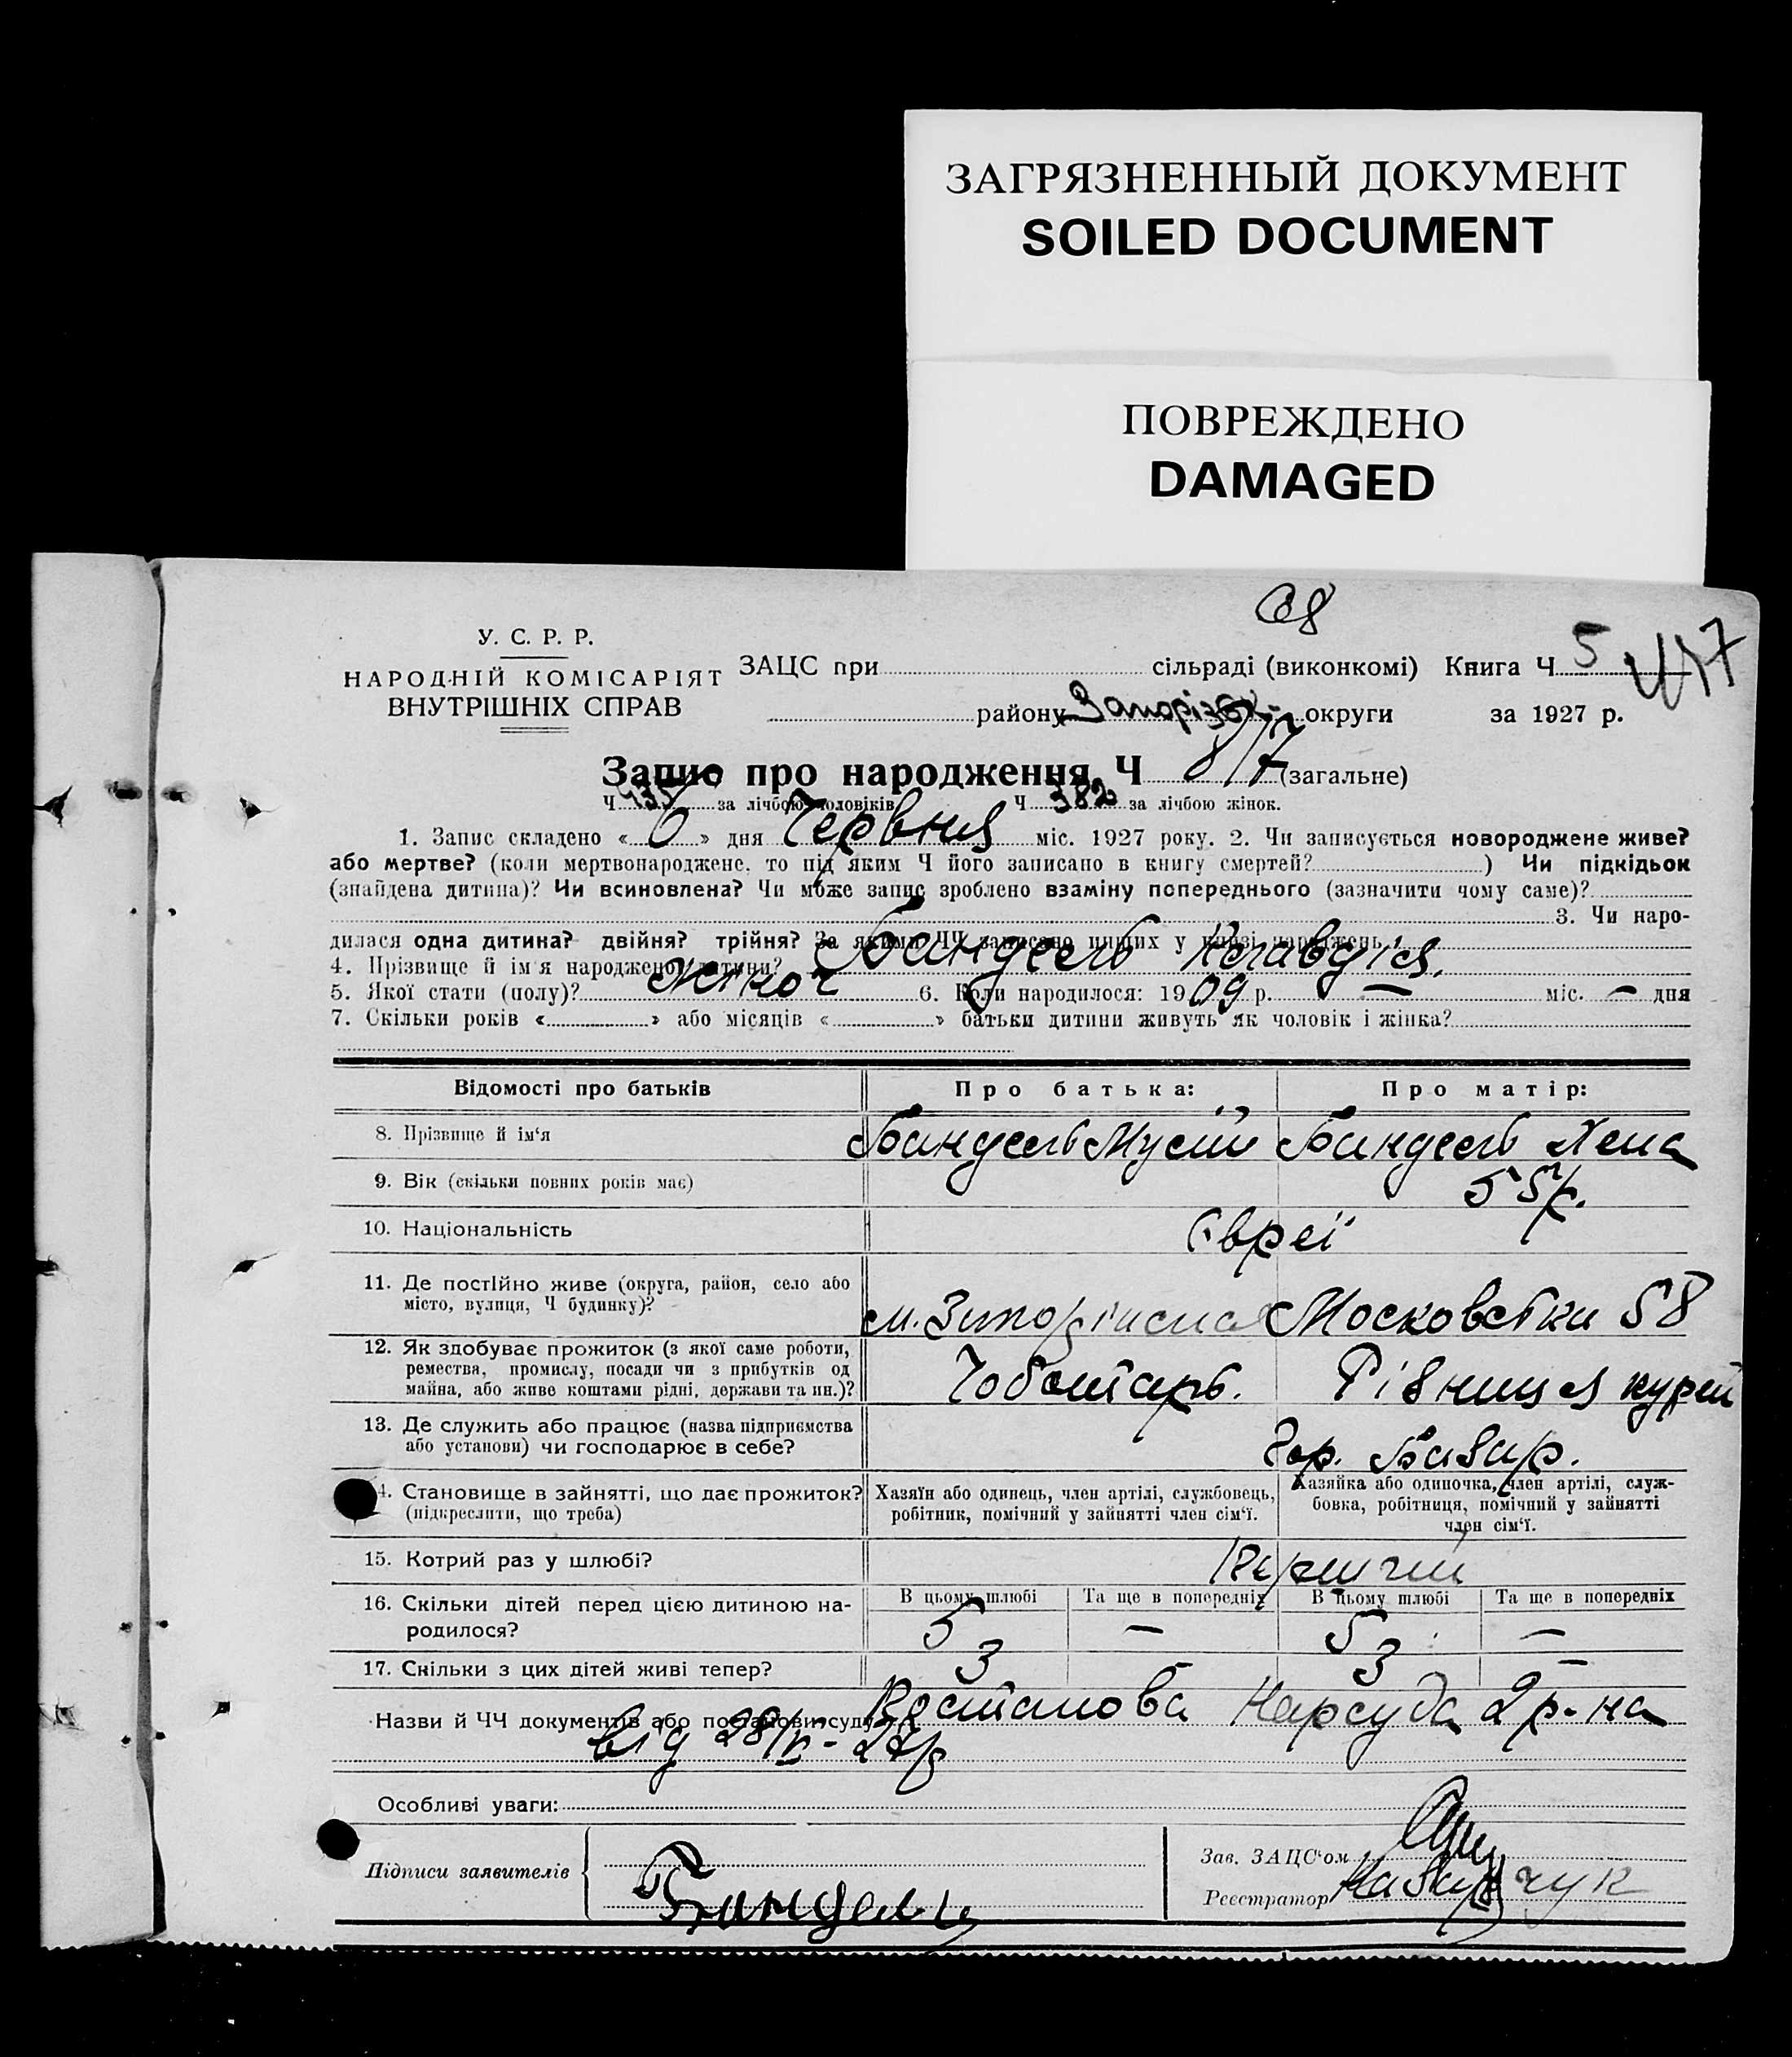 ЗАГРЯЗНЕННЫЙ ДОКУМЕНТ
SOILED DOCUMENT
ПОВРЕЖДЕНО
DAMAGED
У. С. Р. Р.
НАРОДНІЙ КОМІСАРІЯТ
ВНУТРІШНІХ СПРАВ
ЗАЦС при сільраді (виконкомі) Книга Ч 5
району Запорізьк- округи за 1927 р.
Запис про народження Ч 817 (загальне)
Ч 435 за лічбою чоловіків Ч 382 за лічбою жінок.
1. Запис складено «6» дня Червня міс. 1927 року. 2. Чи записується новороджене живе?
або мертве? (коли мертвонароджене, то під яким Ч його записано в книгу смертей? ) Чи підкідьок
(знайдена дитина)? Чи всиновлена? Чи може запис зроблено взаміну попереднього (зазначити чому саме)?
3. Чи наро-
дилася одна дитина? двійня? трійня? За якими ЧЧ записано инших у книзі народжень
4. Прізвище й ім'я народженої дитини? Бандель Клавдія.
5. Якої стати (полу)? жіноч 6. Коли народилося: 1909 р. — міс. — дня
7. Скільки років « » або місяців « » батьки дитини живуть як чоловік і жінка?
Відомості про батьків Про батька: Про матір:
8. Прізвище й ім'я Бандель Мусій Бандель
9. Вік (скільки повних років має) 55 р.
10. Національність Євреї
11. Де постійно живе (округа, район, село або
місто, вулиця, Ч будинку)? м. Московська 58
12. Як здобуває прожиток (з якої саме роботи,
ремества, промислу, посади чи з прибутків од
майна, або живе коштами рідні, держави та ин.)? Чоботарь. Різниця курей
13. Де служить або працює (назва підприємства
або установи) чи господарює в себе? Гор. Базар.
14. Становище в зайнятті, що дає прожиток?
(підкреслити, що треба)
Хазяїн або одинець, член артілі, службовець,
робітник, помічний у зайнятті член сім'ї.
Хазяйка або одиночка, член артілі, служ-
бовка, робітниця, помічний у зайнятті
член сім'ї.
15. Котрий раз у шлюбі? Перший
16. Скільки дітей перед цією дитиною на-
родилося?
В цьому шлюбі Та ще в попередніх В цьому шлюбі Та ще в попередніх
5 — 5 —
17. Скільки з цих дітей живі тепер? 3 - 3 —
Назви й ЧЧ документів або постанови суду Постанова Нарсуда 2 р-на
від 28/V-27р
Особливі уваги:
Підписи заявителів
Бандель
Зав. ЗАЦС'ом
Реєстратор